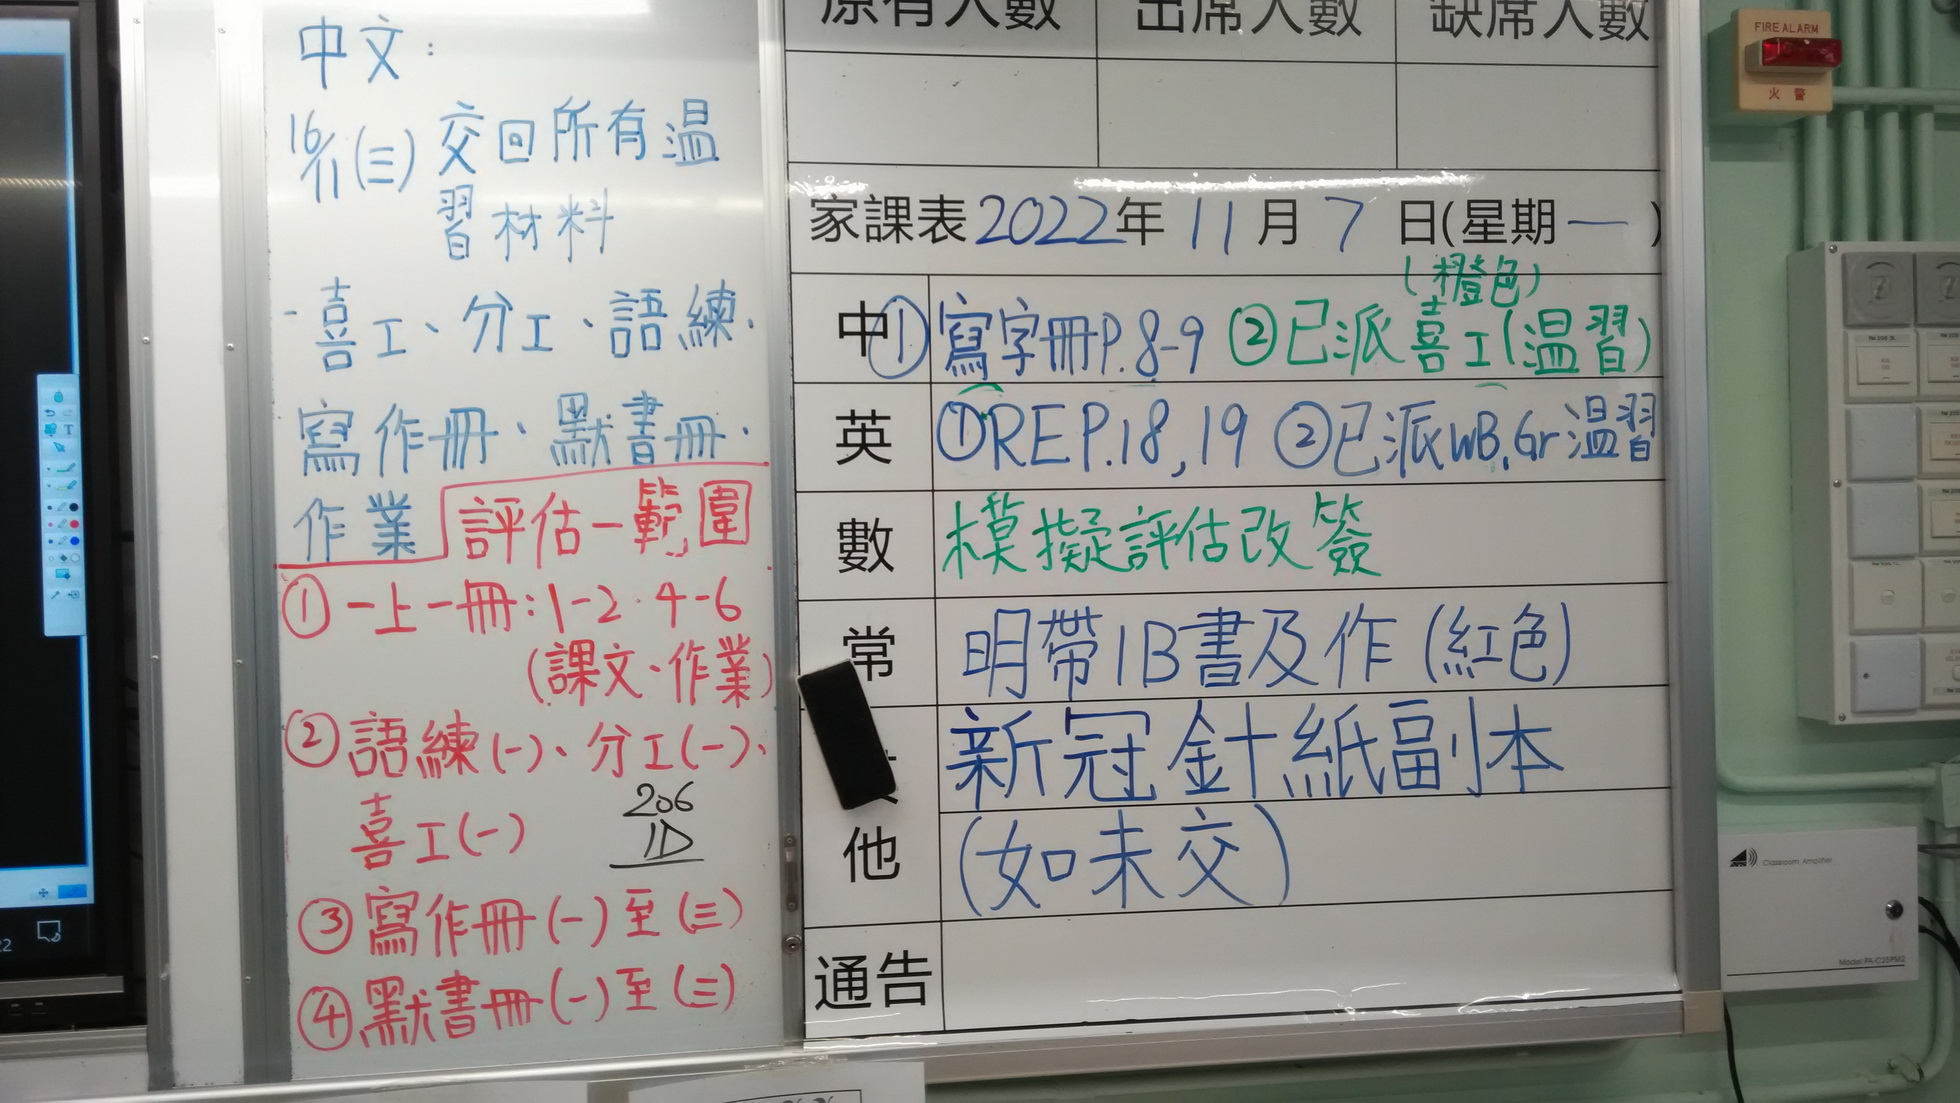 中文：
16/11(三) 交回所有温
習材料
- 喜工、分工、語練、
寫作冊、默書冊、
作業
評估一範圍
① 一上一冊：1-2、4-6
(課文、作業)
② 語練(一)、分工(一)、
喜工(一)
206
1D
③ 寫作冊(一)至(三)
④ 默書冊(一)至(三)
原有人數 出席人數 缺席人數
家課表 2022年 11月 7日(星期一)
(橙色)
中 ①寫字冊P.8-9 ②已派喜工(温習)
英 ①RE P.18,19 ②已派WB,Gr温習
數 模擬評估改簽
常 明帶1B書及作(紅色)
新冠針紙副本
他 (如未交)
通告
FIRE ALARM
火警
Classroom Amplifier
Model:PA-C25PM2
22